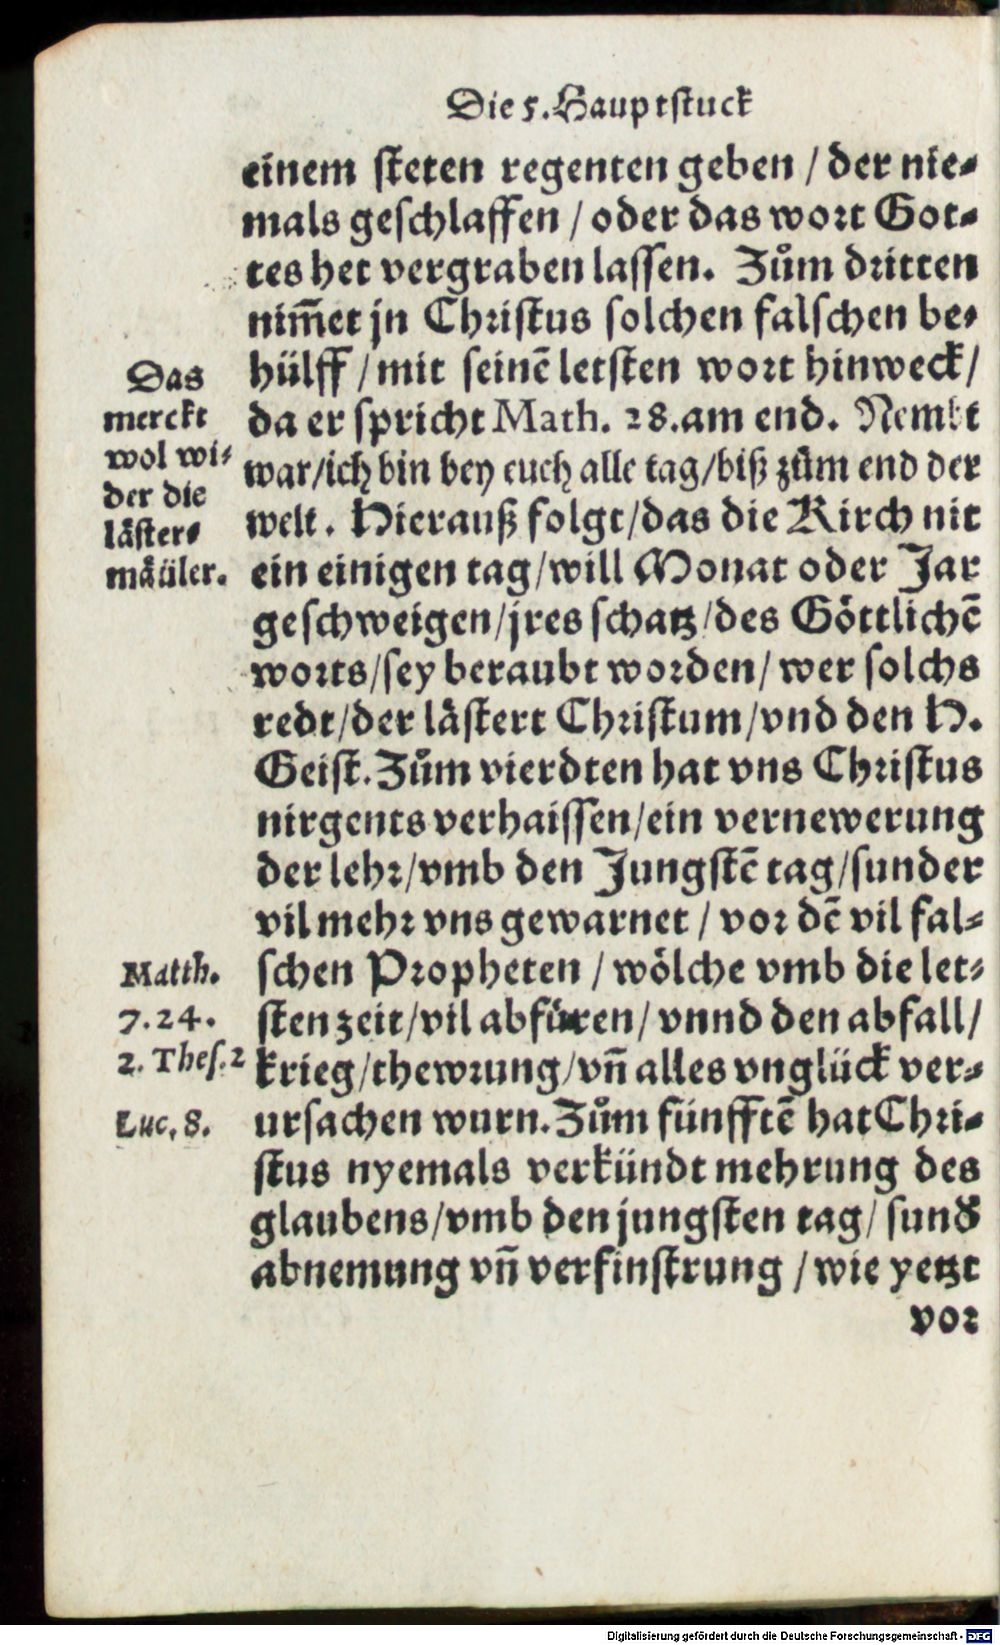 Die 5. Hauptstuck
einem steten regenten geben / der nie⸗
mals geschlaffen / oder das wort Got⸗
tes het vergraben lassen. Zům dritten
nim̃et jn Christus solchen falschen be⸗
hülff / mit seinẽ letsten wort hinweck /
Das
merckt
wol wi⸗
der die
läster⸗
mäüler.
da er spricht Math. 28. am end. Nembt
war / ich bin bey euch alle tag / biß zům end der
welt. Hierauß folgt / das die Kirch nit
ein einigen tag / will Monat oder Jar
geschweigen / jres schatz / des Göttlichẽ
worts / sey beraubt worden / wer solchs
redt / der lästert Christum / vnd den H.
Geist. Zům vierdten hat vns Christus
nirgents verhaissen / ein vernewerung
der lehr / vmb den Jungstẽ tag / sunder
vil mehr vns gewarnet / vor dẽ vil fal⸗
Matth.
7. 24.
2. Thes. 2
Luc. 8.
schen Propheten / wölche vmb die let⸗
sten zeit / vil abfüren / vnnd den abfall /
krieg / thewrung / vñ alles vnglück ver⸗
ursachen wurn. Zům fünfftẽ hat Chri⸗
stus nyemals verkündt mehrung des
glaubens / vmb den jungsten tag / sund̛
abnemung vñ verfinstrung / wie yetzt
vor
Digitalisierung gefördert durch die Deutsche Forschungsgemeinschaft - DFG